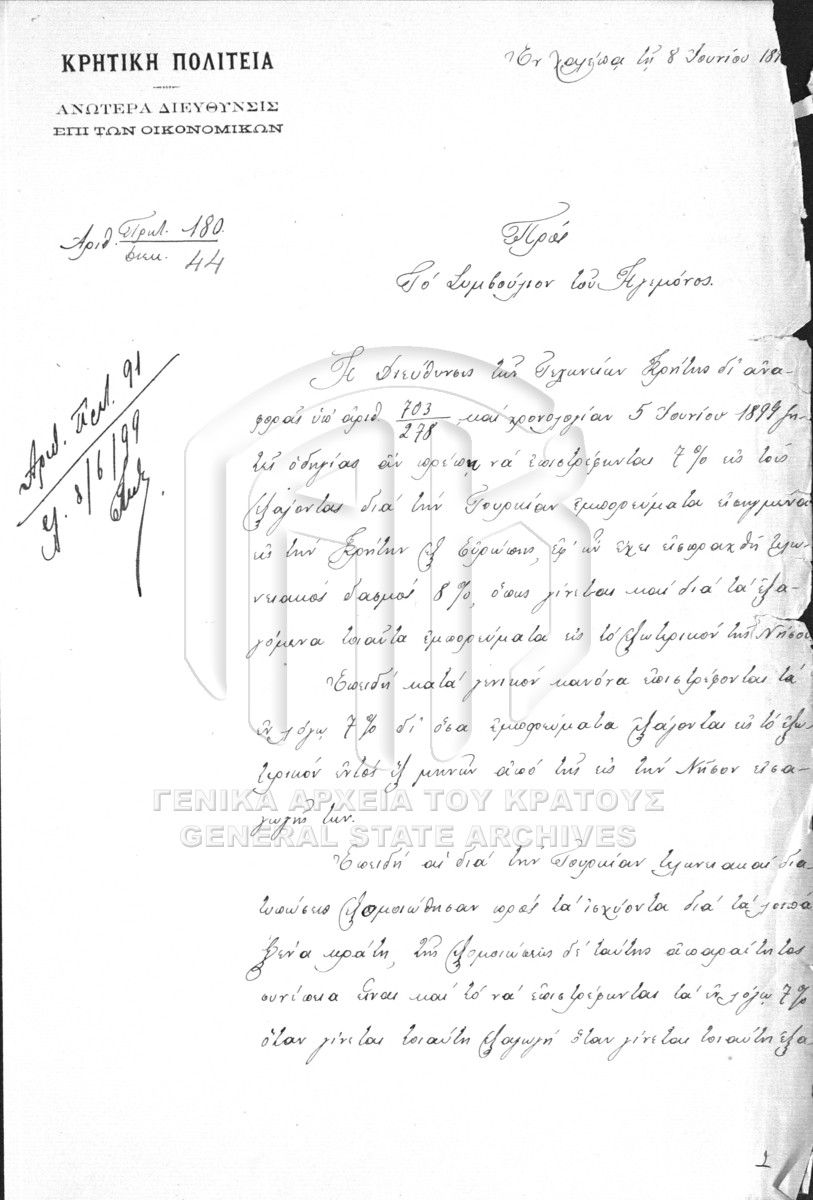 ΚΡΗΤΙΚΗ ΠΟΛΙΤΕΙΑ
ΑΝΩΤΕΡΑ ΔΙΕΥΘΥΝΣΙΣ
ΕΠΙ ΤΩΝ ΟΙΚΟΝΟΜΙΚΩΝ
Ἐν Χαλέπᾳ τῇ 8 Ἰουνίου 18
Ἀριθ. Πρωτ. 180.
Διεκ. 44
Πρὸς
Τὸ Συμβούλιον τοῦ Ἡγεμόνος.
Ἀριθ. Πρωτ. 91
8/6/99
Ἡ Διεύθυνσις τῶν Τελωνείων Κρήτης δι' ἀνα-
φορᾶς ὑπ' ἀριθ 703/278, καὶ χρονολογίαν 5 Ἰουνίου 1899 ζη-
τεῖ ὁδηγίας ἂν πρέπῃ νὰ ἐπιστρέφωνται 7% εἰς τοὺς
ἐξάγοντας διὰ τὴν Τουρκίαν ἐμπορεύματα εἰσηγμένα
εἰς τὴν Κρήτην ἐξ Εὐρώπης, ἐφ' ὧν ἔχει εἰσπραχθῆ τελω-
νειακὸς δασμὸς 8%, ὅπως γίνεται καὶ διὰ τὰ ἐξα-
γόμενα τοιαῦτα ἐμπορεύματα εἰς τὸ ἐξωτερικὸν τῆς Νήσου
Ἐπειδὴ κατὰ γενικὸν κανόνα ἐπιστρέφονται τὰ
ἐν λόγῳ 7% δι' ὅσα ἐμπορεύματα ἐξάγονται εἰς τὸ ἐξω-
τερικὸν ἐντὸς ἓξ μηνῶν ἀπὸ τῆς εἰς τὴν Νῆσον εἰσα-
γωγῆς των.
Ἐπειδὴ αἱ διὰ τὴν Τουρκίαν τελωνειακαὶ δια-
τυπώσεις ἐξομοιώθησαν πρὸς τὰ ἰσχύοντα διὰ τὰ λοιπὰ
ξένα κράτη, τῆς ἐξομοιώσεως δὲ ταύτης ἀπαραίτητος
συνέπεια εἶναι καὶ τὸ νὰ ἐπιστρέφωνται τὰ ἐν λόγῳ 7%
ὅταν γίνεται τοιαύτη ἐξαγωγὴ ὅταν γίνεται τοιαύτη ἐξα
ΓΕΝΙΚΑ ΑΡΧΕΙΑ ΤΟΥ ΚΡΑΤΟΥΣ
GENERAL STATE ARCHIVES
1